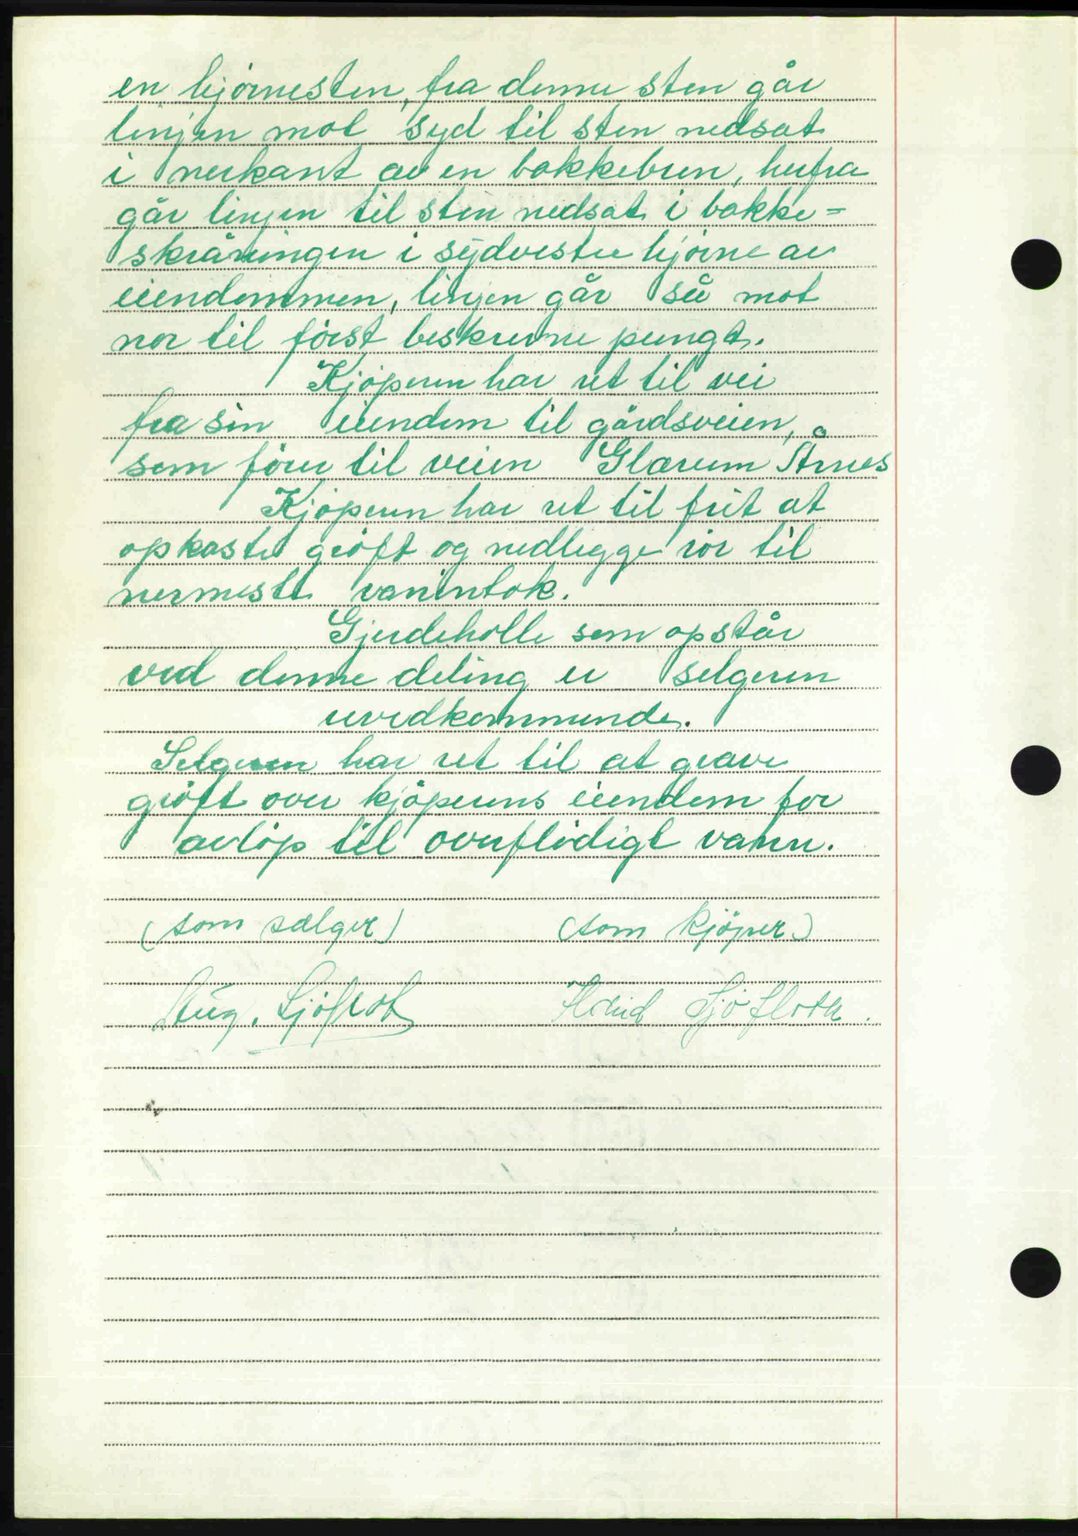 en hjörnesten, fra denne sten går
linjen mot syd til sten nedsat
i nerkant av en bakkebren, herfra
går linjen til sten nedsat i bakke=
skråningen i sydvestre hjörne av
eiendommen, linjen går så mot
nor til först beskrevne pungt.
Kjöperen har ret til vei
fra sin eiendom til gårdsveien,
som förer til veien Glærum Årnes
Kjöperen har ret til frit at
opkaste gröft og nedlegge rör til
nermeste vanintok.
Gjerdeholle som opstår
ved denne deling er selgeren
uvedkommende.
Selgeren har ret til at grave
gröft over kjöperens eiendom for
avlöp til overflödigt vann.
(som sælger) (som kjöper)
Sjöflot Sjöfloth.